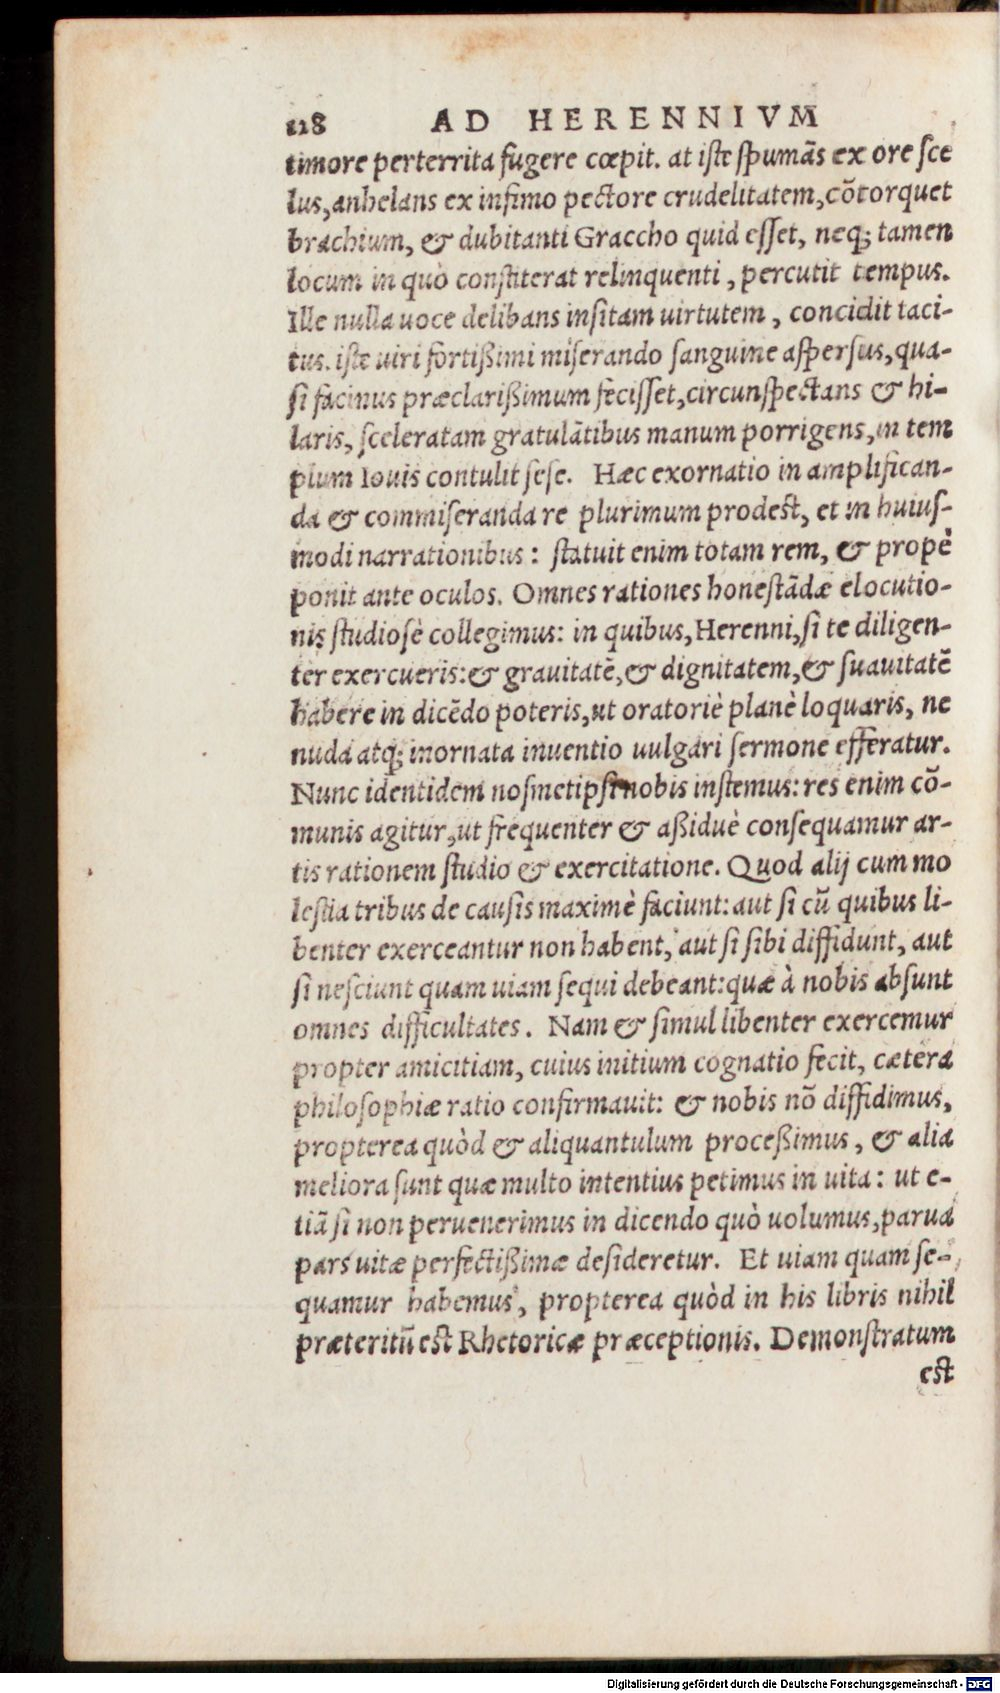 118 AD HERENNIVM
timore perterrita fugere cœpit. at iste spumãs ex ore sce
lus, anhelans ex infimo pectore crudelitatem, cõtorquet
brachium, & dubitanti Graccho quid esset, neq; tamen
locum in quò constiterat relinquenti, percutit tempus.
Ille nulla uoce delibans insitam uirtutem, concidit taci-
tus. iste uiri fortißimi miserando sanguine aspersus, qua-
si facinus præclarißimum fecisset, circunspectans & hi-
laris, sceleratam gratulãtibus manum porrigens, in tem
plum Iouis contulit sese. Hæc exornatio in amplifican-
da & commiseranda re plurimum prodest, et in huius-
modi narrationibus: statuit enim totam rem, & propè
ponit ante oculos. Omnes rationes honestãdæ elocutio-
nis studiosè collegimus: in quibus, Herenni, si te diligen-
ter exercueris: & grauitatẽ, & dignitatem, & suauitatẽ
habere in dicẽdo poteris, ut oratoriè planè loquaris, ne
nuda atq; inornata inuentio uulgari sermone efferatur.
Nunc identidem nosmetipsi nobis instemus: res enim cõ-
munis agitur, ut frequenter & aßiduè consequamur ar-
tis rationem studio & exercitatione. Quod alij cum mo
lestia tribus de causis maximè faciunt: aut si cũ quibus li-
benter exerceantur non habent, aut si sibi diffidunt, aut
si nesciunt quam uiam sequi debeant: quæ à nobis absunt
omnes difficultates. Nam & simul libenter exercemur
propter amicitiam, cuius initium cognatio fecit, cætera
philosophiæ ratio confirmauit: & nobis nõ diffidimus,
propterea quòd & aliquantulum proceßimus, & alia
meliora sunt quæ multo intentius petimus in uita: ut e-
tiã si non peruenerimus in dicendo quò uolumus, parua
pars uitæ perfectißimæ desideretur. Et uiam quam se-
quamur habemus, propterea quòd in his libris nihil
præteritũ est Rhetoricæ præceptionis. Demonstratum
est
Digitalisierung gefördert durch die Deutsche Forschungsgemeinschaft - DFG